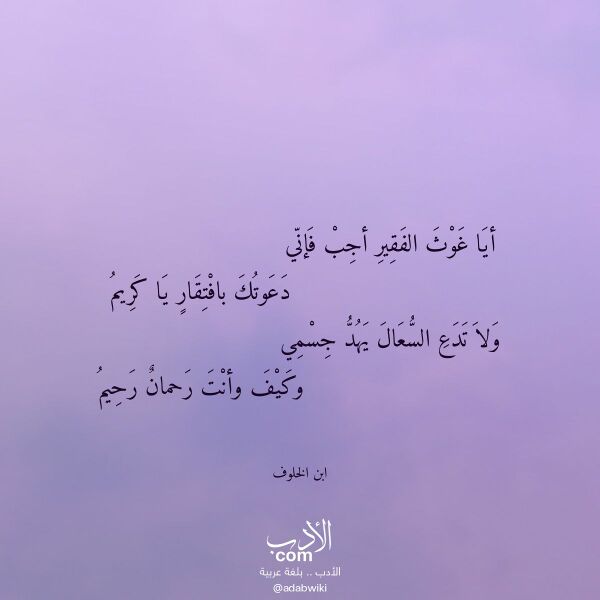 أيَا غَوْثَ الفَقِيرِ أجِبْ فَإنّي
دَعَوتُكَ بافْتِقَارٍ يَا كَرِيمُ
وَلاَ تَدَعِ السُّعَالَ يَهُدُّ جِسْمِي
وكَيْفَ وأنْتَ رَحمانٌ رَحِيمُ
ابن الخلوف
الأدب
.com
الأدب .. بلغة عربية
@adabwiki